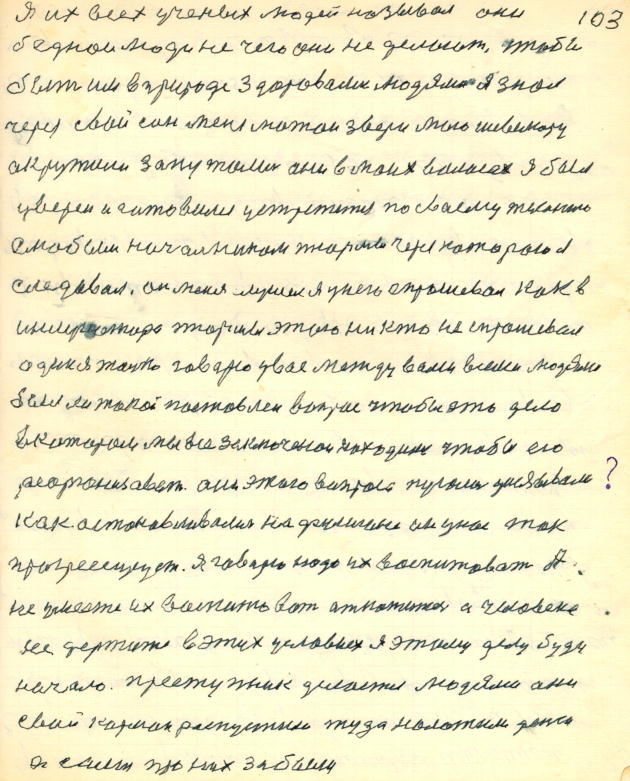 Я их всех ученых людей называл они 103
бедной люди не чего они не делают, чтобы
быт им в природе здоровыми людями я знал
через свой сон меня
окружили запутоли они в моих волосах я был
уверен и готовился устретится по своему
с любым начальником тюрьмы через которого я
следовал. он меня я у него спрошевал как в
этого ни кто не спрошевал
один я толко говарю у вас между вами всеми людями
был ли такой поставлен вопрос чтобы это дело
в котором мы все заключеной находимся чтобы его
реорганизавать. они этого вопроса пугалис ?
как остоновливалис на он у нас так
прогрессирует. Я говарю надо их воспитовать А
не умеете их воспитоват а человека
не держите в этих условиях я этому делу буду
начало. преступник делается людями они
свой карман роспустили туда наложили
а сами про них забыли